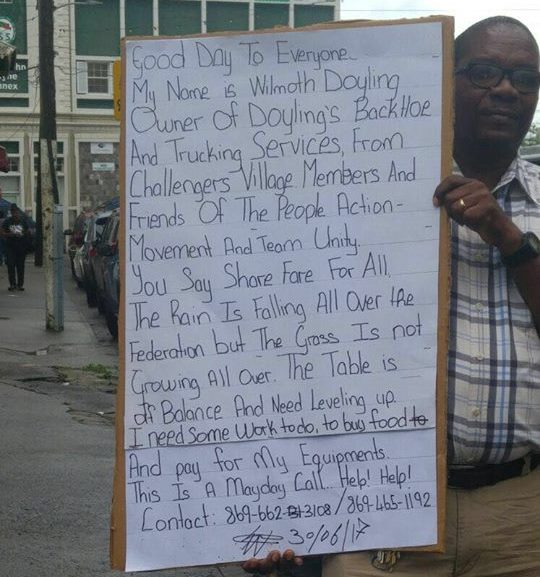 Good Day To Everyone.
My Name is Wilmoth Doyling
Owner Of Doyling's BackHoe
And Trucking Services, From
Challengers Village Members And
Friends Of The People Action-
Movement And Team Unity.
You Say Share Fare For All,
The Rain Is Falling All Over the
Federation but The Grass Is not
Growing All Over. The Table is
off Balance And Need Leveling up.
I need Some Work to do, to buy food to
And pay for My Equipments.
This Is A Mayday Call... Help! Help!
Contact: 869-662-3108 / 869-465-1192
30/06/17